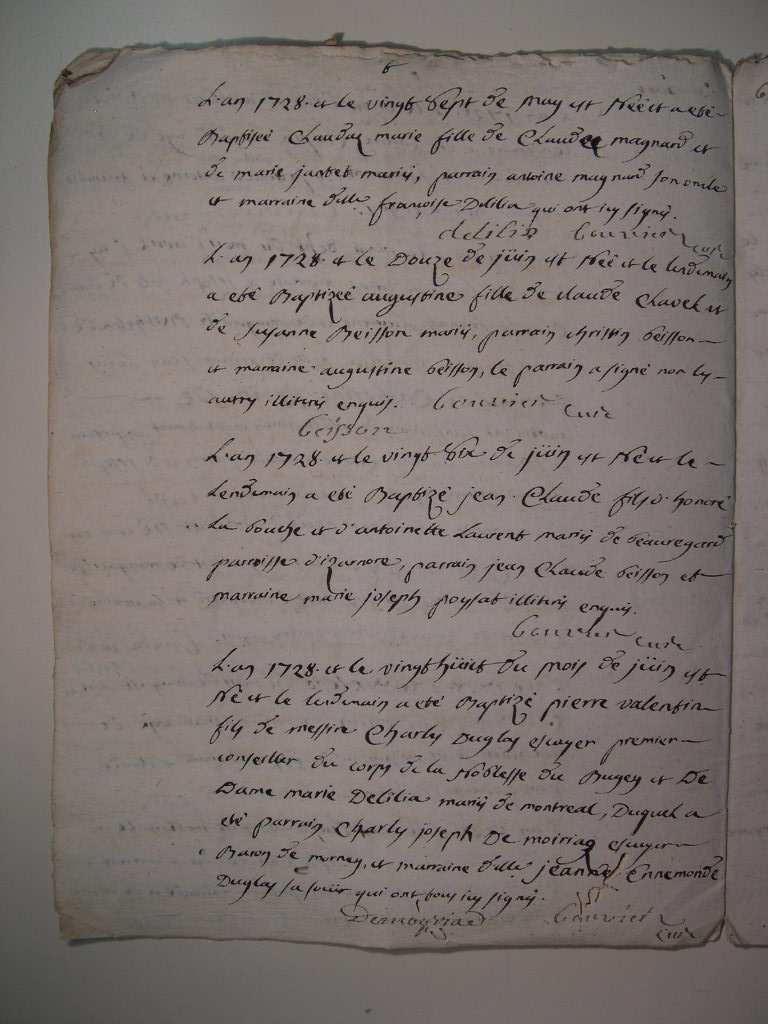 6
L'an 1728. et le vingt sept de may est Née et a eté
Baptisée Claudaz marie fille de Claude magnard et
de marie jantet mariés, parrain antoine magnard son oncle
et marraine dlle françoise Delilia qui ont icy signés.
delilia Bouvier curé
L'an 1728. et le Douze de jüin est Née et le lendemain
a eté Baptizée augustine fille de claude Clavel et
de Susanne Beisson mariés, parrain christin beisson
et marraine augustine beisson, le parrain a signé non les
autres illiterés enquis. Bouvier curé
beisson
L'an 1728. et le vingt six de jüin est Né et le
Lendemain a eté Baptizé jean Claude fils d'honoré
La bouche et d'antoinette Laurent mariés de beauregard
parroisse d'izarnore, parrain jean Claude beisson et
marraine marie joseph poysat illiterés enquis.
Bouvier curé
L'an 1728. et le vingt hüit du mois de jüin est
Né et le lendemain a eté Baptizé pierre valentin
fils de messire Charles Duglas escuyer premier
conseiller du corps de la Noblesse du Bugey et De
Dame marie Delilia mariés de montreal, Duquel a
eté parrain Charles joseph De moiriaz escuyer
Baron de mornay, et marraine dlle jeanne Ennemonde
Duglas sa sœur qui ont tous icy signés.
Demoyriac Bouvier
curé